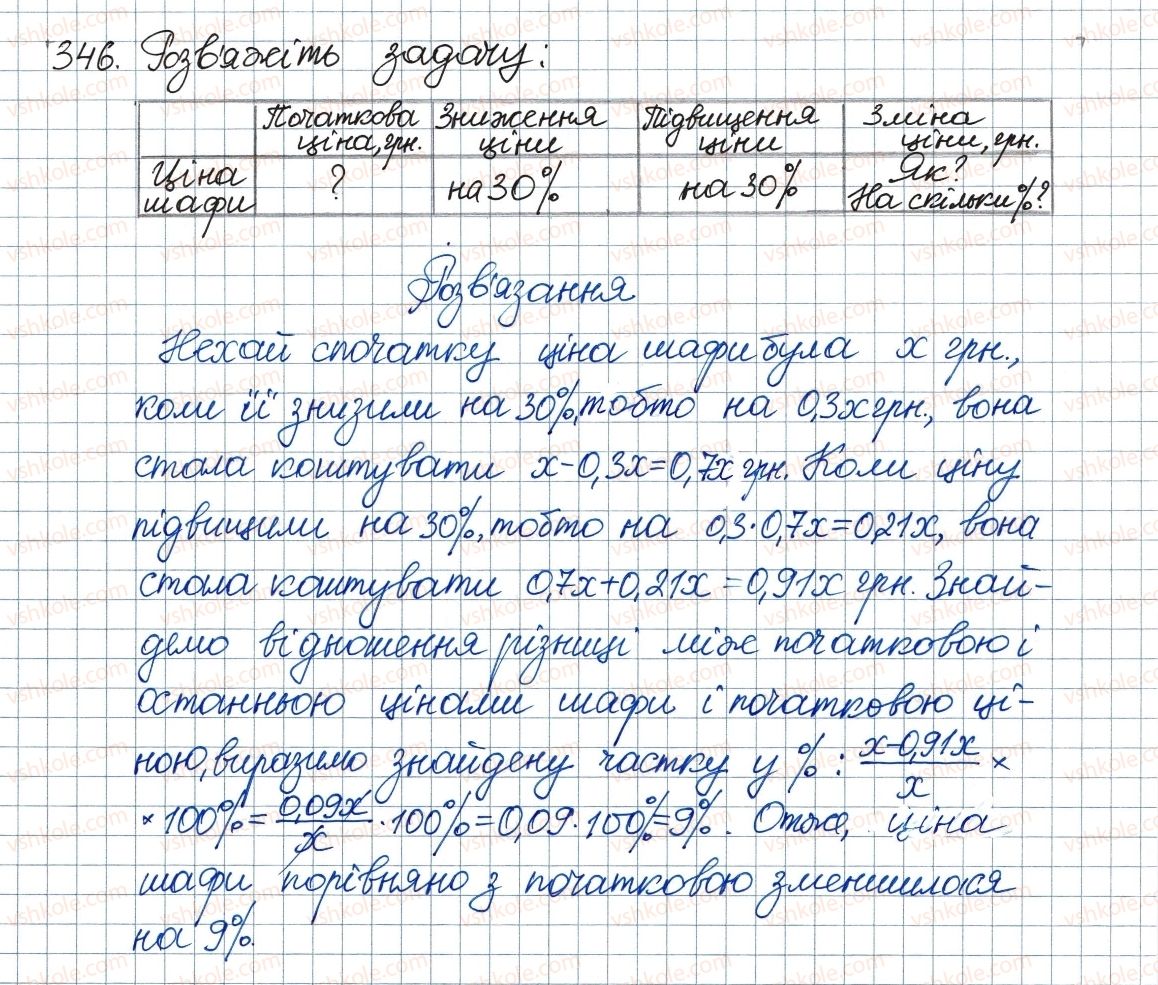 346. Розв'яжіть задачу:
Початкова ціна, грн. Зниження ціни Підвищення ціни Зміна ціни, грн.
Ціна шафи ? на 30% на 30% Як? На скільки %?
Розв'язання
Нехай спочатку ціна шафи була x грн.,
коли її знизили на 30%, тобто на 0,3x грн., вона
стала коштувати x-0,3x=0,7x грн. Коли ціну
підвищили на 30%, тобто на 0,3·0,7x=0,21x, вона
стала коштувати 0,7x+0,21x=0,91x грн. Знай-
демо відношення різниці між початковою і
останньою цінами шафи і початковою ці-
ною, виразимо знайдену частку у %: (x-0,91x)/x ×
× 100% = 0,09x/x · 100% = 0,09 · 100% = 9%. Отже, ціна
шафи порівняно з початковою зменшилася
на 9%.